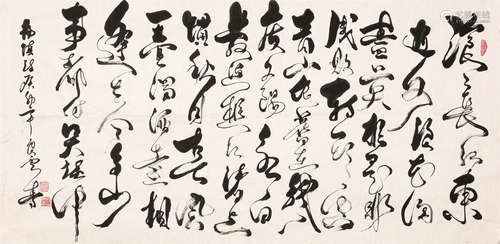 滚々长江东
逝水浪花淘
尽英雄是非
成败转头空
青山依旧在几
度夕阳红白
发渔樵江渚上
惯看秋月春风
一壶浊酒喜相
逢古今多少
事都付笑谈中
杨慎词
书